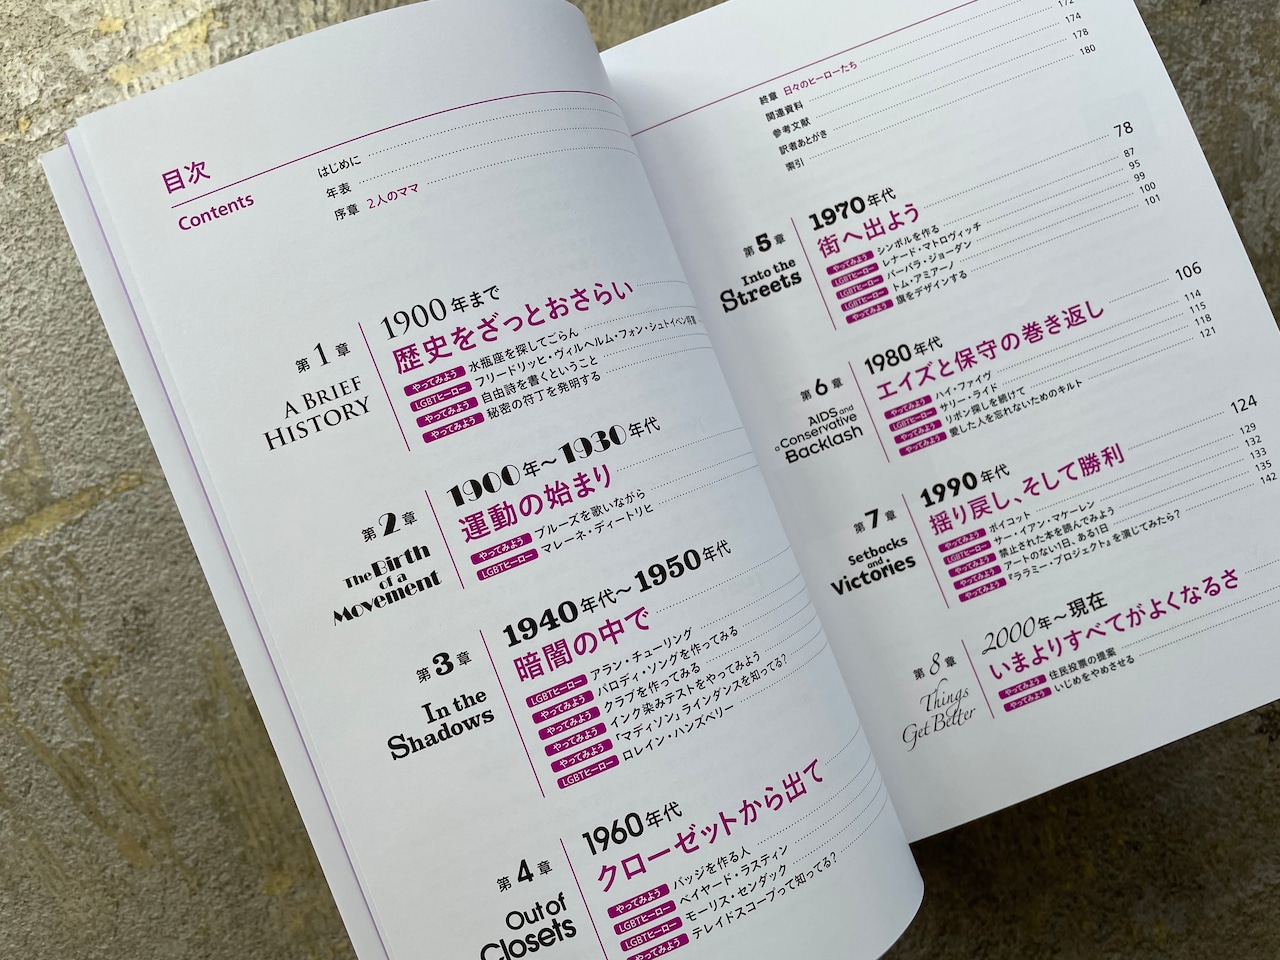 目次
Contents
はじめに
年表
序章 2人のママ
第1章
A BRIEF
HISTORY
1900年まで
歴史をざっとおさらい
やってみよう 水瓶座を探してごらん
LGBTヒーロー フリードリッヒ・ヴィルヘルム・フォン・シュトイベン将軍
やってみよう 自由詩を書くということ
やってみよう 秘密の符丁を発明する
第2章
The Birth
of a
Movement
1900年〜1930年代
運動の始まり
やってみよう ブルーズを歌いながら
LGBTヒーロー マレーネ・ディートリヒ
第3章
In the
Shadows
1940年代〜1950年代
暗闇の中で
LGBTヒーロー アラン・チューリング
やってみよう パロディ・ソングを作ってみる
やってみよう クラブを作ってみる
やってみよう インク染みテストをやってみよう
やってみよう 「マディソン」ラインダンスを知ってる?
LGBTヒーロー ロレイン・ハンズベリー
第4章
Out of
Closets
1960年代
クローゼットから出て
やってみよう バッジを作る人
LGBTヒーロー ベイヤード・ラスティン
LGBTヒーロー モーリス・センダック
やってみよう テレイドスコープって知ってる?
172
終章 日々のヒーローたち 174
関連資料 178
参考文献 180
訳者あとがき
索引
第5章
Into the
Streets
1970年代
街へ出よう 78
やってみよう シンボルを作る 87
LGBTヒーロー レナード・マトロヴィッチ 95
LGBTヒーロー バーバラ・ジョーダン 99
LGBTヒーロー トム・アミアーノ 100
やってみよう 旗をデザインする 101
第6章
AIDS and
a Conservative
Backlash
1980年代
エイズと保守の巻き返し 106
やってみよう ハイ・ファイヴ 114
LGBTヒーロー サリー・ライド 115
やってみよう リボン探しを続けて 118
やってみよう 愛した人を忘れないためのキルト 121
第7章
Setbacks
and
Victories
1990年代
揺り戻し、そして勝利 124
やってみよう ボイコット 129
LGBTヒーロー サー・イアン・マケーレン 132
やってみよう 禁止された本を読んでみよう 133
やってみよう アートのない1日、ある1日 135
やってみよう 『ララミー・プロジェクト』を演じてみたら? 142
第8章
Things
Get Better
2000年〜現在
いまよりすべてがよくなるさ
やってみよう 住民投票の提案
やってみよう いじめをやめさせる